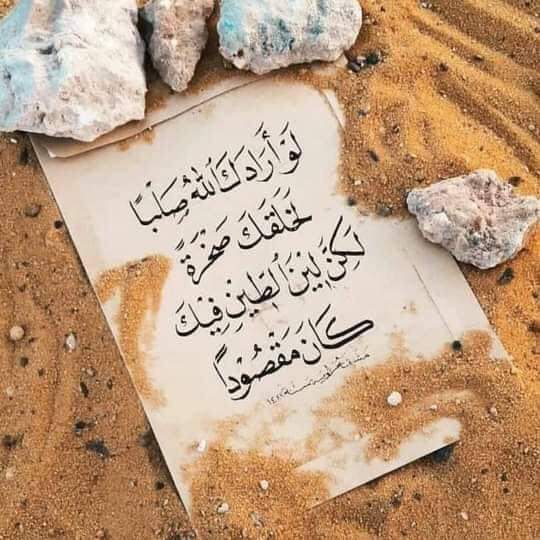 لَوْ أَرَادَكَ اللهُ صَلْبًا
لَخَلَقَكَ صَخْرَةً
لَكِنَّ لِينَ الطِينِ فِيكَ
كَانَ مَقْصُودًا